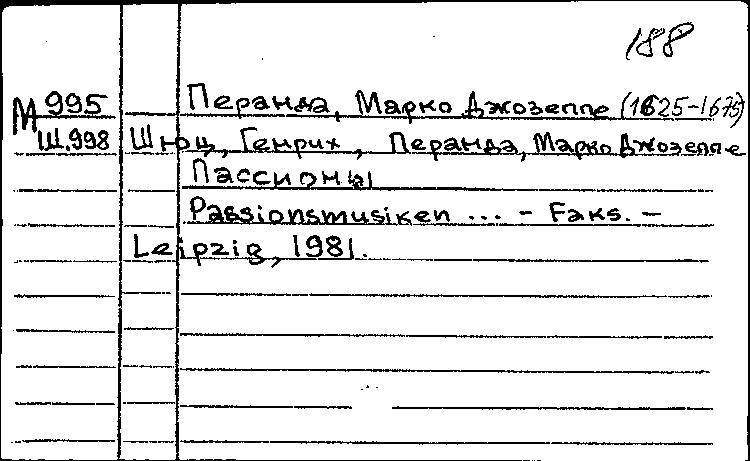 188
М 995 Перанда, Марко Джозеппе (1625-1675)
Ш.998 Шютц, Генрих, Перанда, Марко Джозеппе
Пассионы
Passionsmusiken ... - Faks. -
Leipzig, 1981.